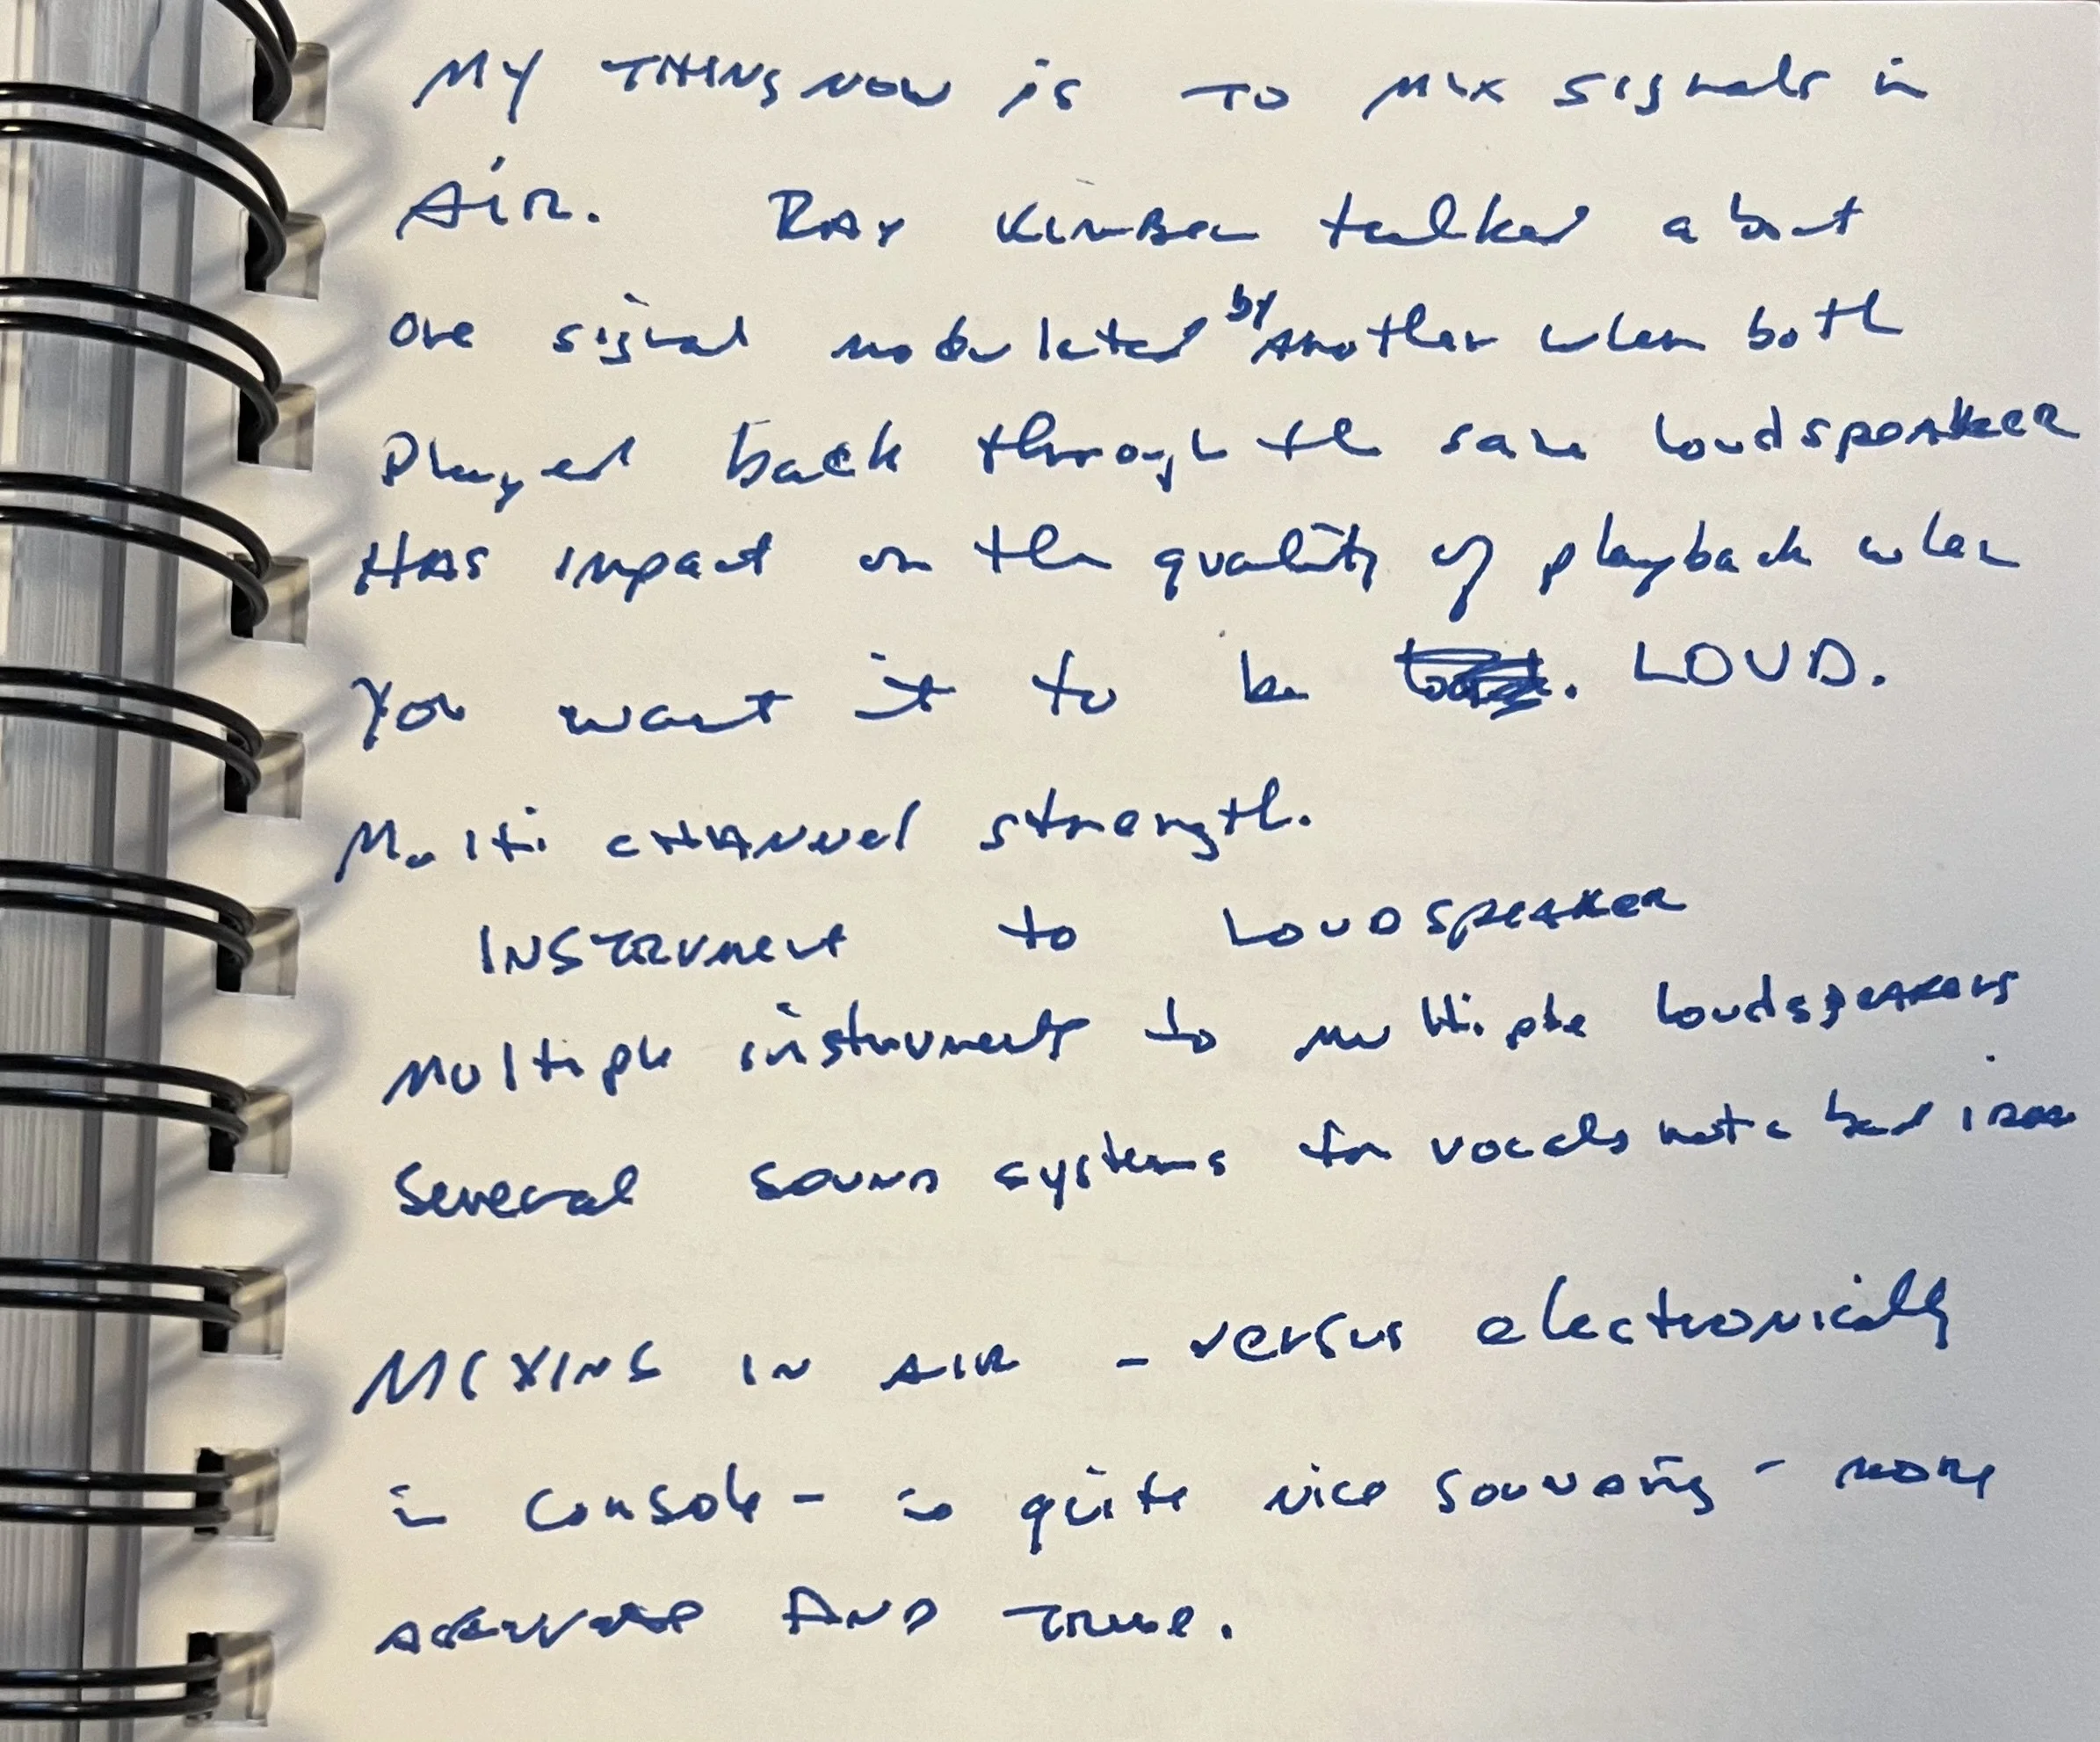 MY THING NOW is TO MIX signals in
AIR. RAY KIMBER talked about
one signal modulated by another when both
Played back through the same loudspeaker
HAS impact on the quality of playback when
You want it to be LOUD.
Multi CHANNEL strength.
INSTRUMENT to LOUDSPEAKER
Multiple instruments to multiple loudspeakers
Several sound systems for vocals not a bad idea
MIXING IN AIR - versus electronically
in console - is quite nice sounding - more
accurate AND TRUE.